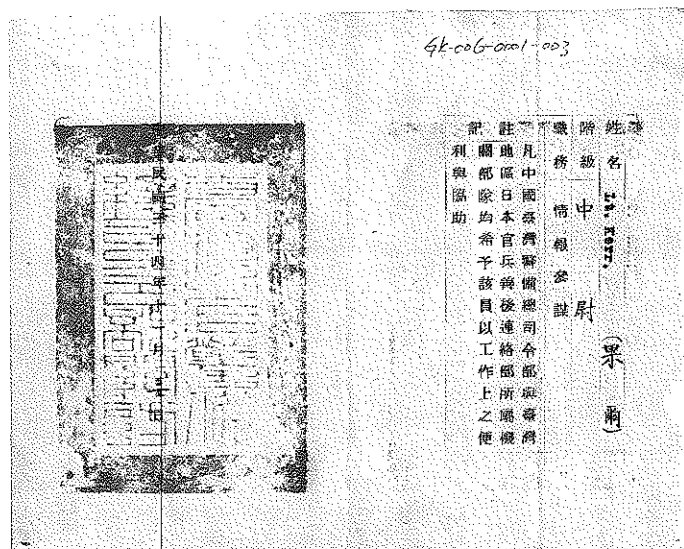 GK-006-0001-003
姓名 Lt. Kerr. (果爾)
階級 中尉
職務 情報參謀
凡中國臺灣警備總司令部與臺灣
地區日本官兵善後連絡部所屬機
關部隊均希予該員以工作上之便
利與協助
註記
中華民國三十四年十一月 日